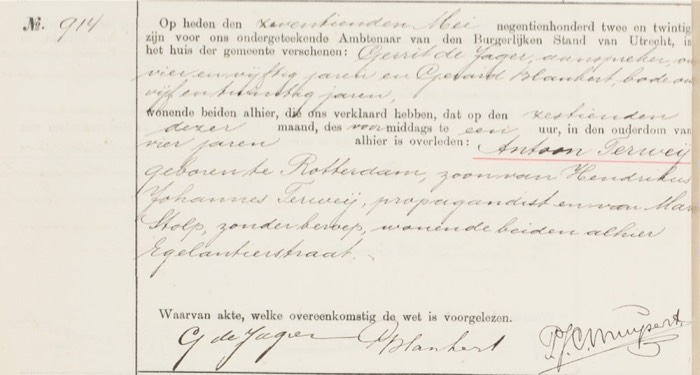 No. 914
Op heden den zeventienden Mei negentienhonderd twee en twintig
zijn voor ons ondergeteekende Ambtenaar van den Burgerlijken Stand van Utrecht, in
het huis der gemeente verschenen: Gerrit de Jager, aanspreker, ou
vier en vijftig jaren en Gerard Blankert, bode ou
vijf en twintig jaren,
wonende beiden alhier, die ons verklaard hebben, dat op den zestienden
dezer maand, des voormiddags te een uur, in den ouderdom van
vier jaren alhier is overleden: Antoon Terweij
geboren te Rotterdam, zoon van Hendrikus
Johannes Terweij, propagandist en van Mar
Stolp, zonder beroep, wonende beiden alhier
Egelantierstraat.
Waarvan akte, welke overeenkomstig de wet is voorgelezen.
G de Jager Blankert